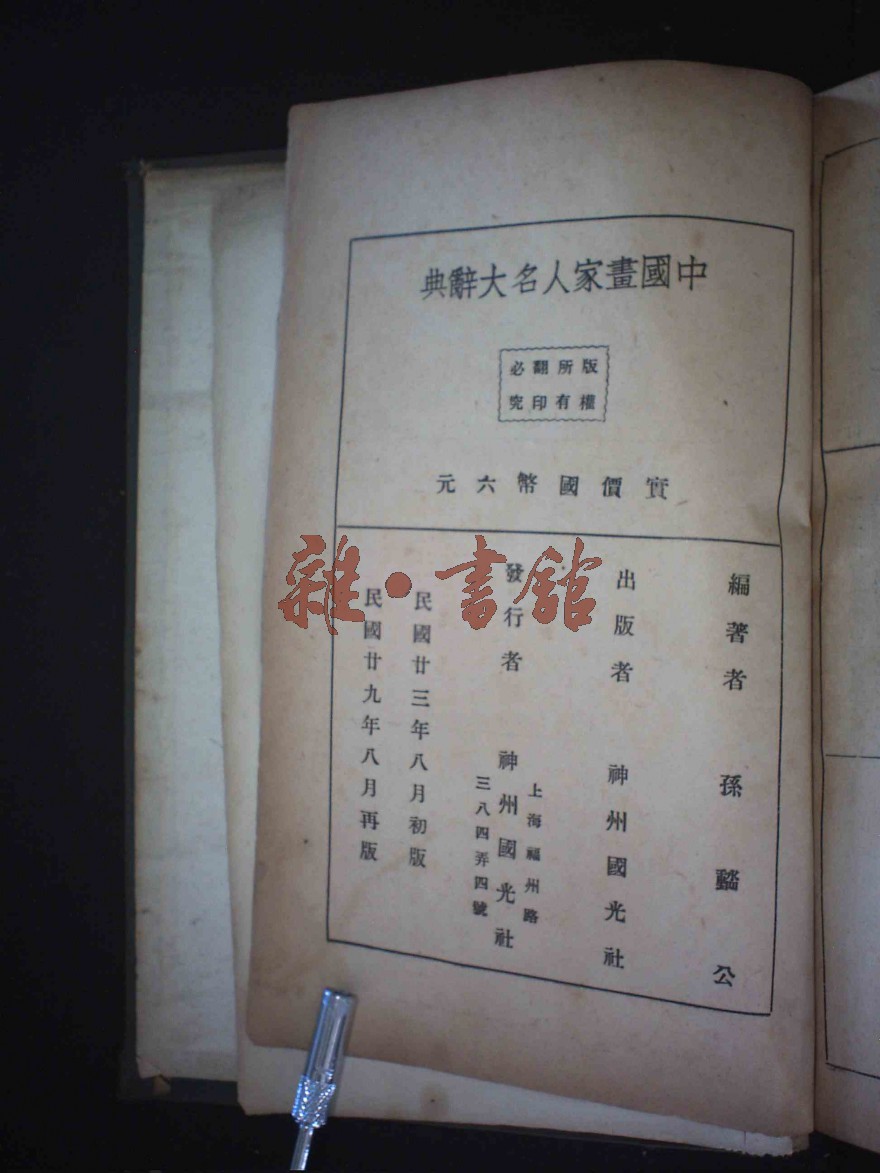 中國畫家人名大辭典
版權所有
翻印必究
實價國幣六元
編著者 孫䜱公
出版者 神州國光社
發行者 神州國光社
上海福州路
三八四弄四號
民國廿三年八月初版
民國廿九年八月再版
雜·書館